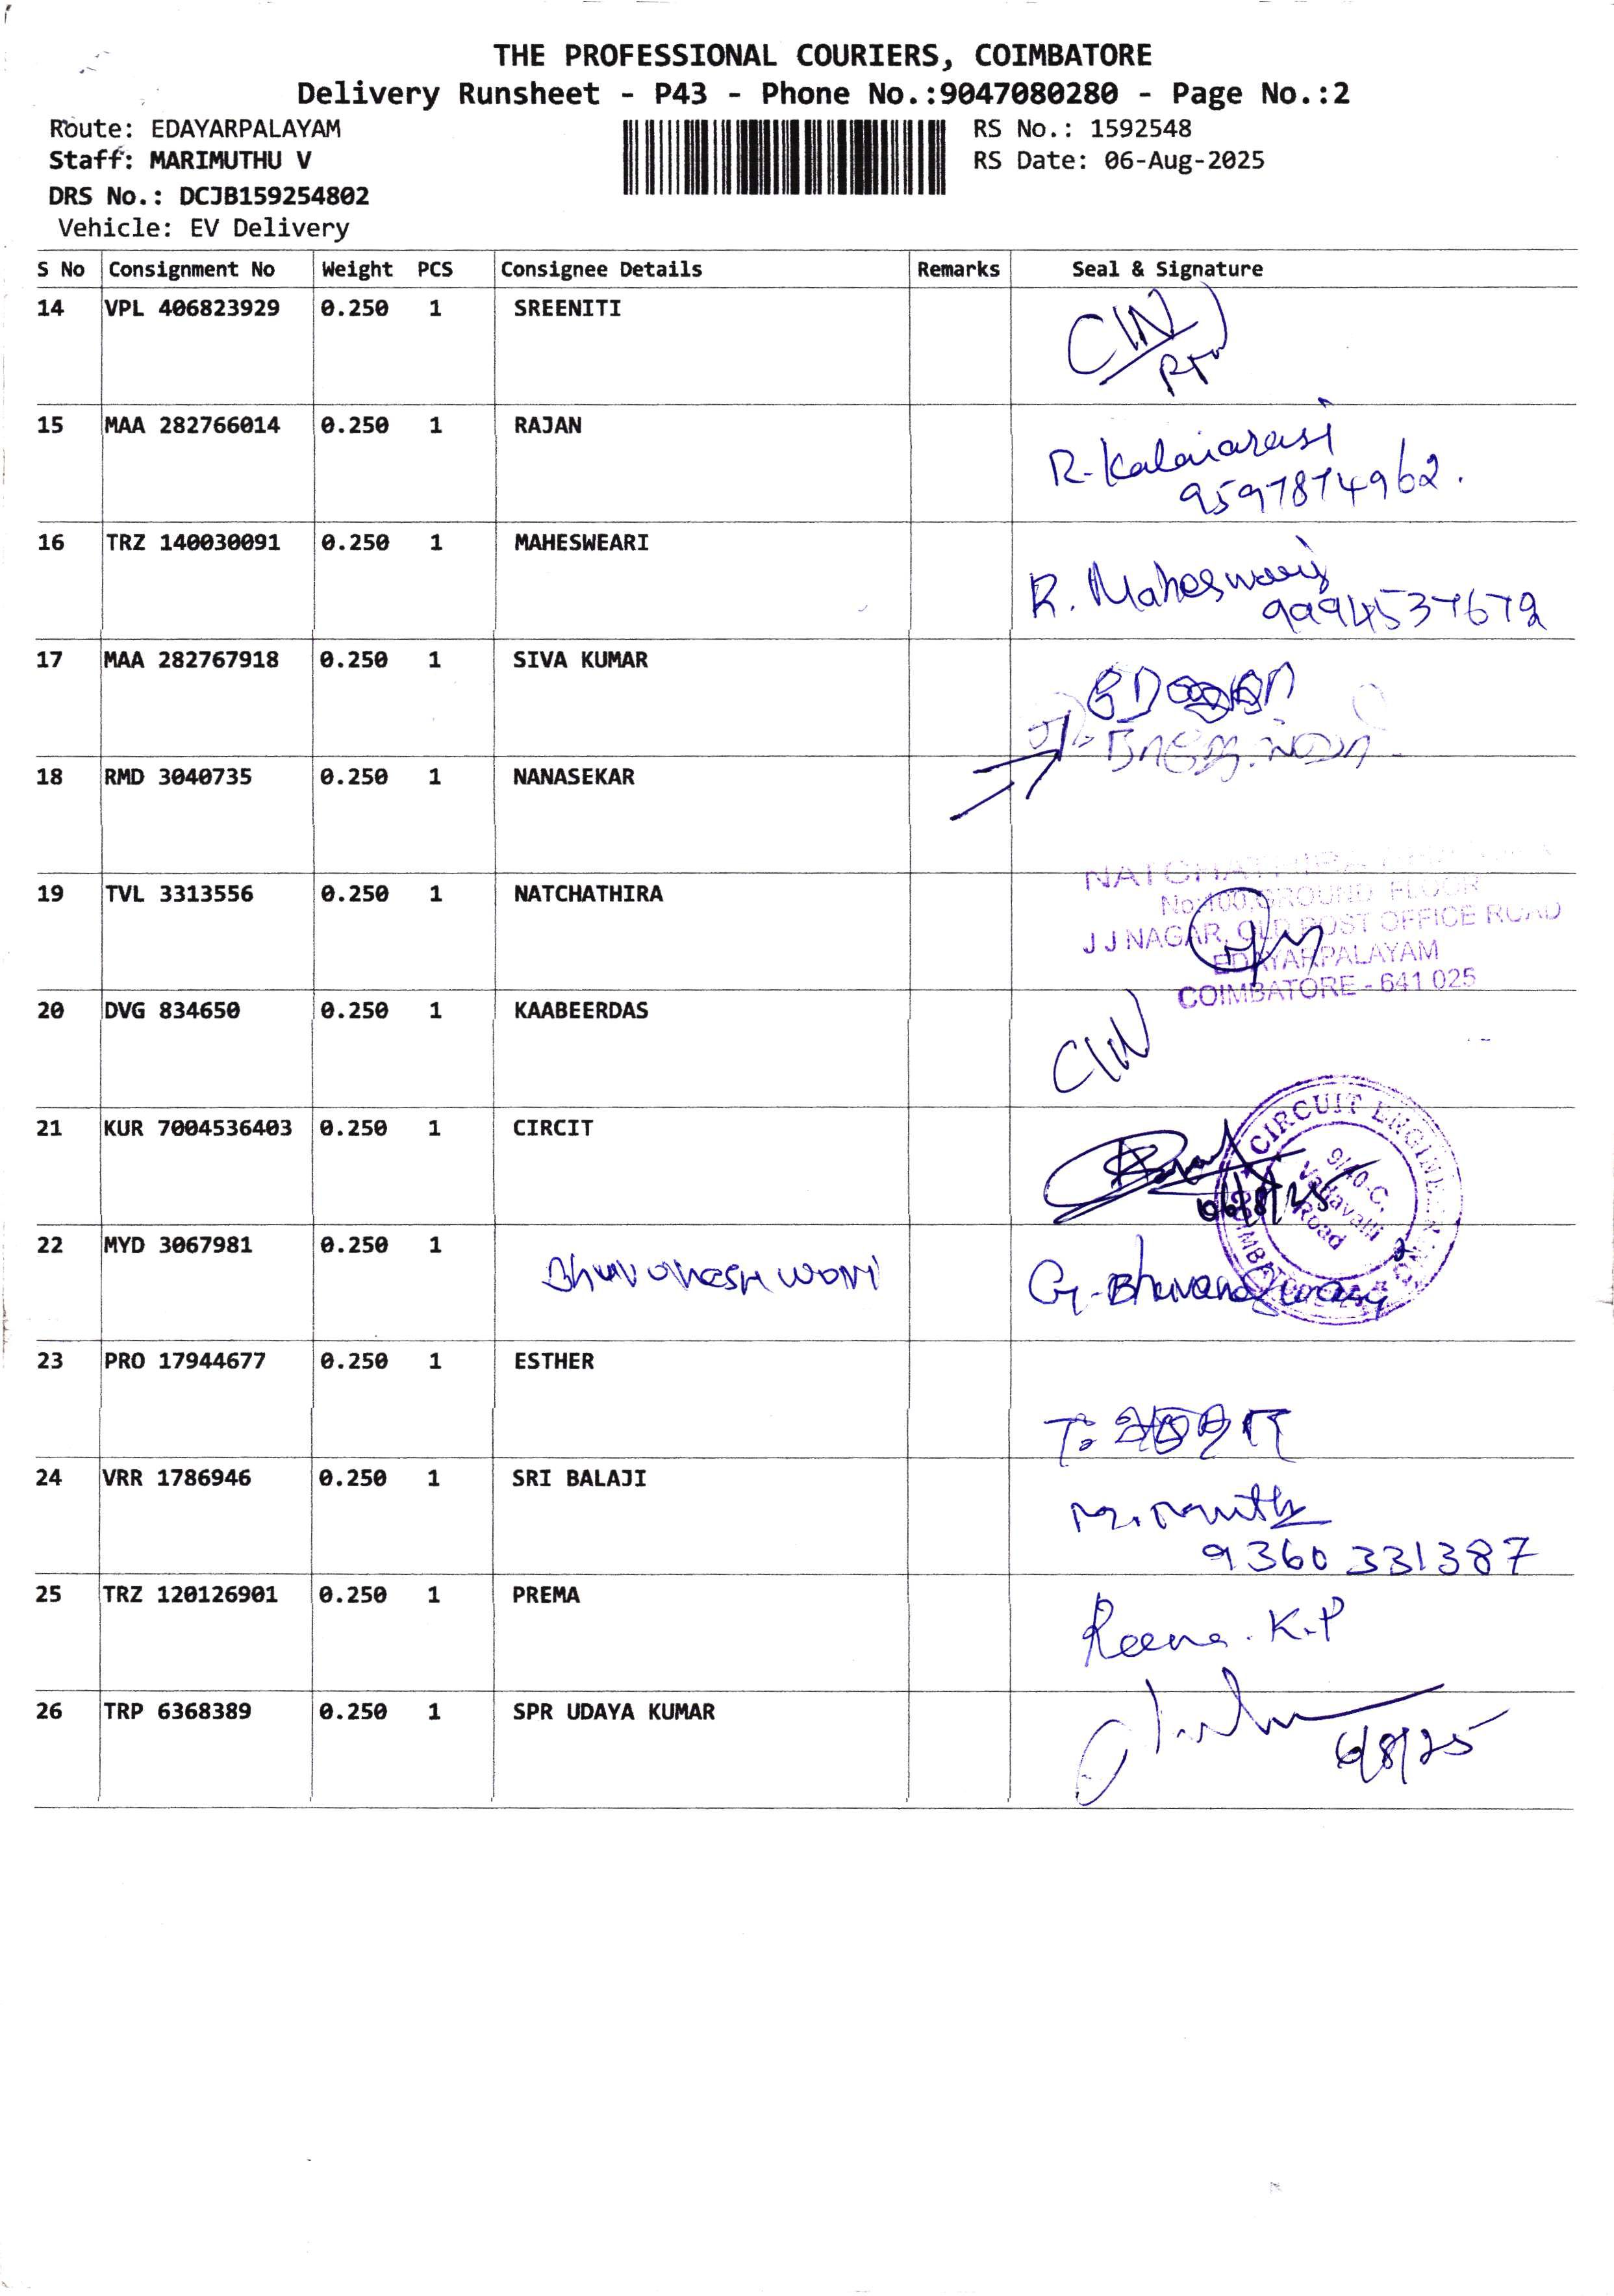 THE PROFESSIONAL COURIERS, COIMBATORE
Delivery Runsheet - P43 - Phone No.:9047080280 - Page No.:2
Route: EDAYARPALAYAM
RS No.: 1592548
Staff: MARIMUTHU V
RS Date: 06-Aug-2025
DRS No.: DCJB159254802
Vehicle: EV Delivery
S No Consignment No Weight PCS Consignee Details Remarks Seal & Signature
14 VPL 406823929 0.250 1 SREENITI
CIN
15 MAA 282766014 0.250 1 RAJAN
R-Kalaiarasi
9597874962.
16 TRZ 140030091 0.250 1 MAHESWEARI
R. Maheswari
9994537672
17 MAA 282767918 0.250 1 SIVA KUMAR
18 RMD 3040735 0.250 1 NANASEKAR
19 TVL 3313556 0.250 1 NATCHATHIRA
No:100, GROUND FLOOR
J J NAGAR, OLD POST OFFICE ROAD
EDAYARPALAYAM
COIMBATORE - 641 025
20 DVG 834650 0.250 1 KAABEERDAS
CIN
21 KUR 7004536403 0.250 1 CIRCIT
CIRCUIT
9/40-C,
Vadavalli
Road
06/8/25
22 MYD 3067981 0.250 1 Bhuvaneshwari
G-Bhuvaneswari
23 PRO 17944677 0.250 1 ESTHER
24 VRR 1786946 0.250 1 SRI BALAJI
9360331387
25 TRZ 120126901 0.250 1 PREMA
Reena.K.P
26 TRP 6368389 0.250 1 SPR UDAYA KUMAR
6/8/25